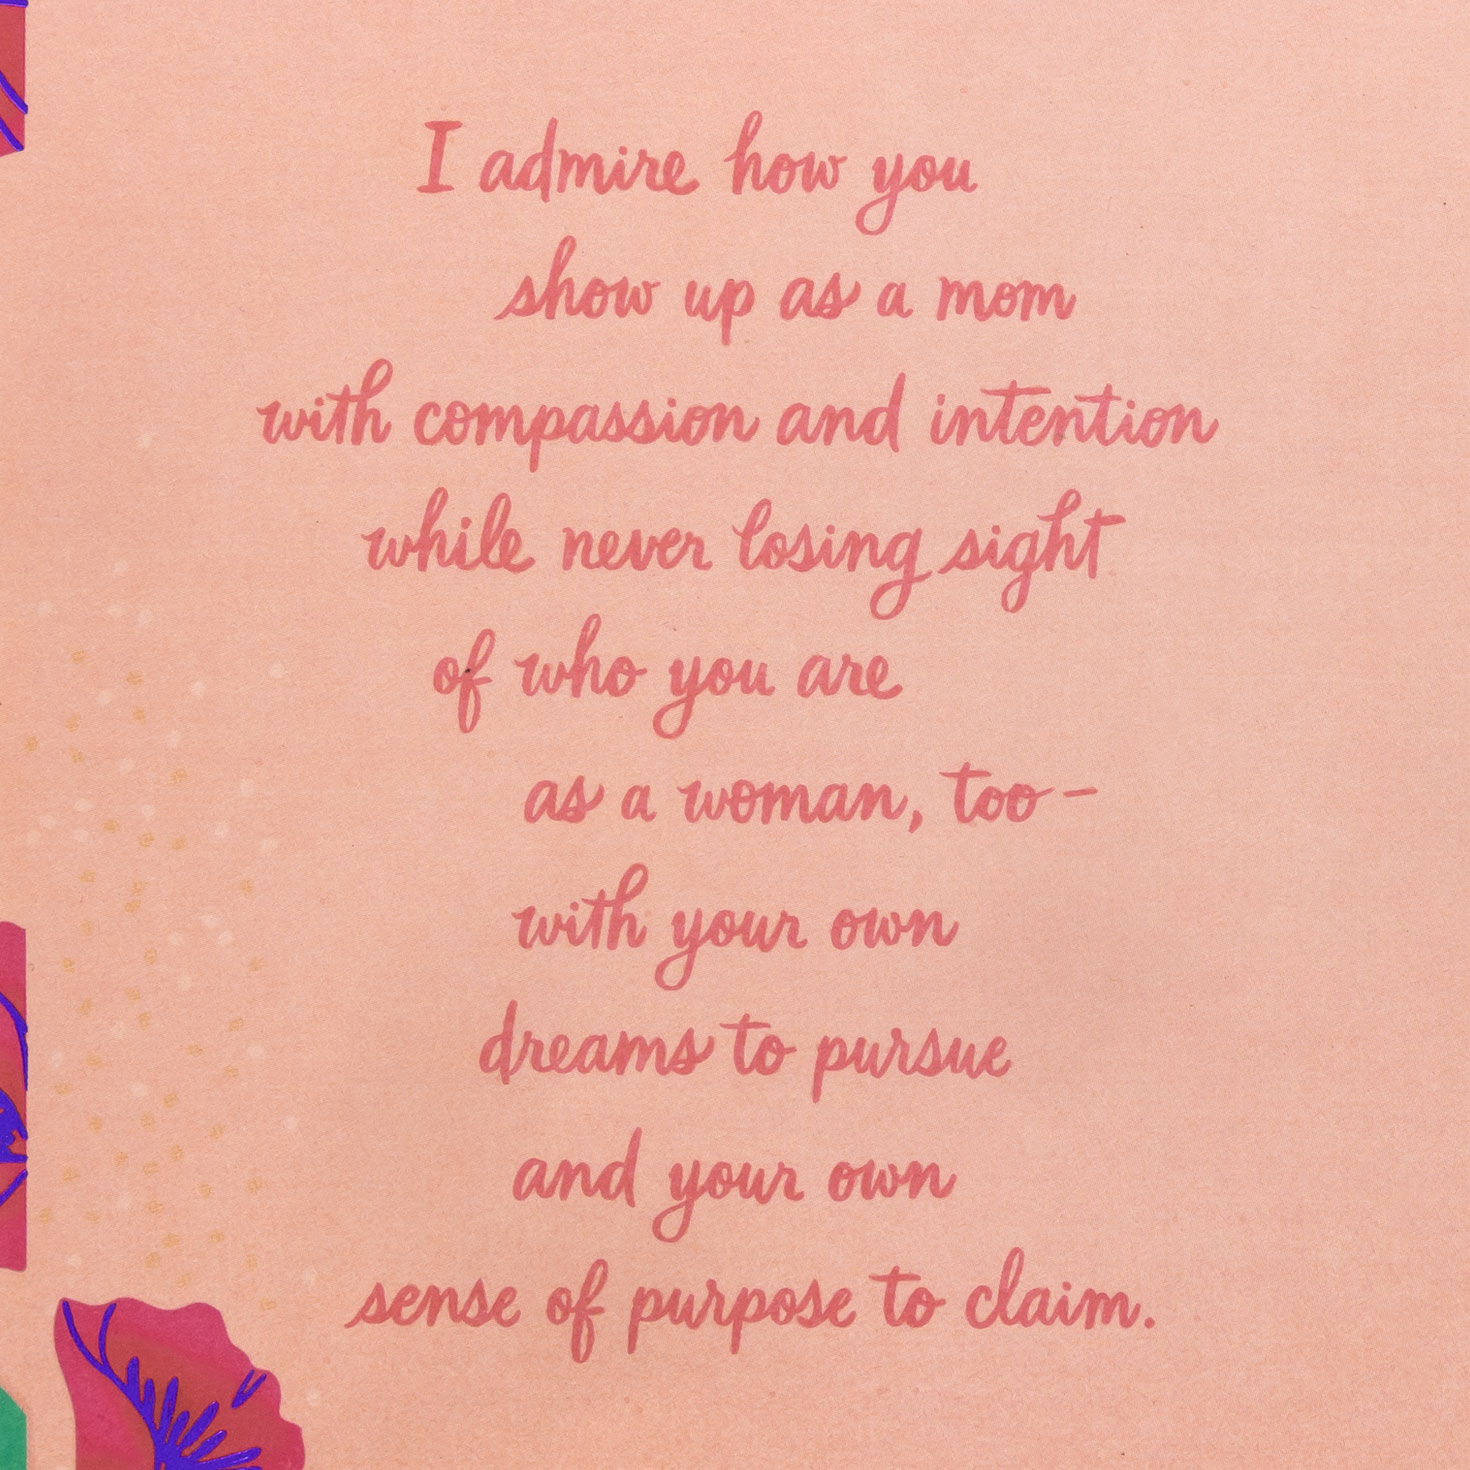 I admire how you
show up as a mom
with compassion and intention
while never losing sight
of who you are
as a woman, too –
with your own
dreams to pursue
and your own
sense of purpose to claim.